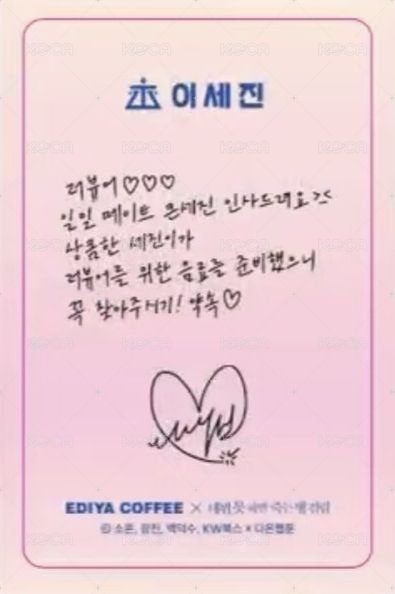 이세진
러뷰어♡♡♡
일일 메이트 큰세진 인사드려요><
상큼한 세진이가
러뷰어를 위한 음료를 준비했으니
꼭 찾아주시기! 약속♡
EDIYA COFFEE × 데뷔 못 하면 죽는 병 걸림
© 소흔, 장진, 백덕수, KW북스 × 다온웹툰
KOCA